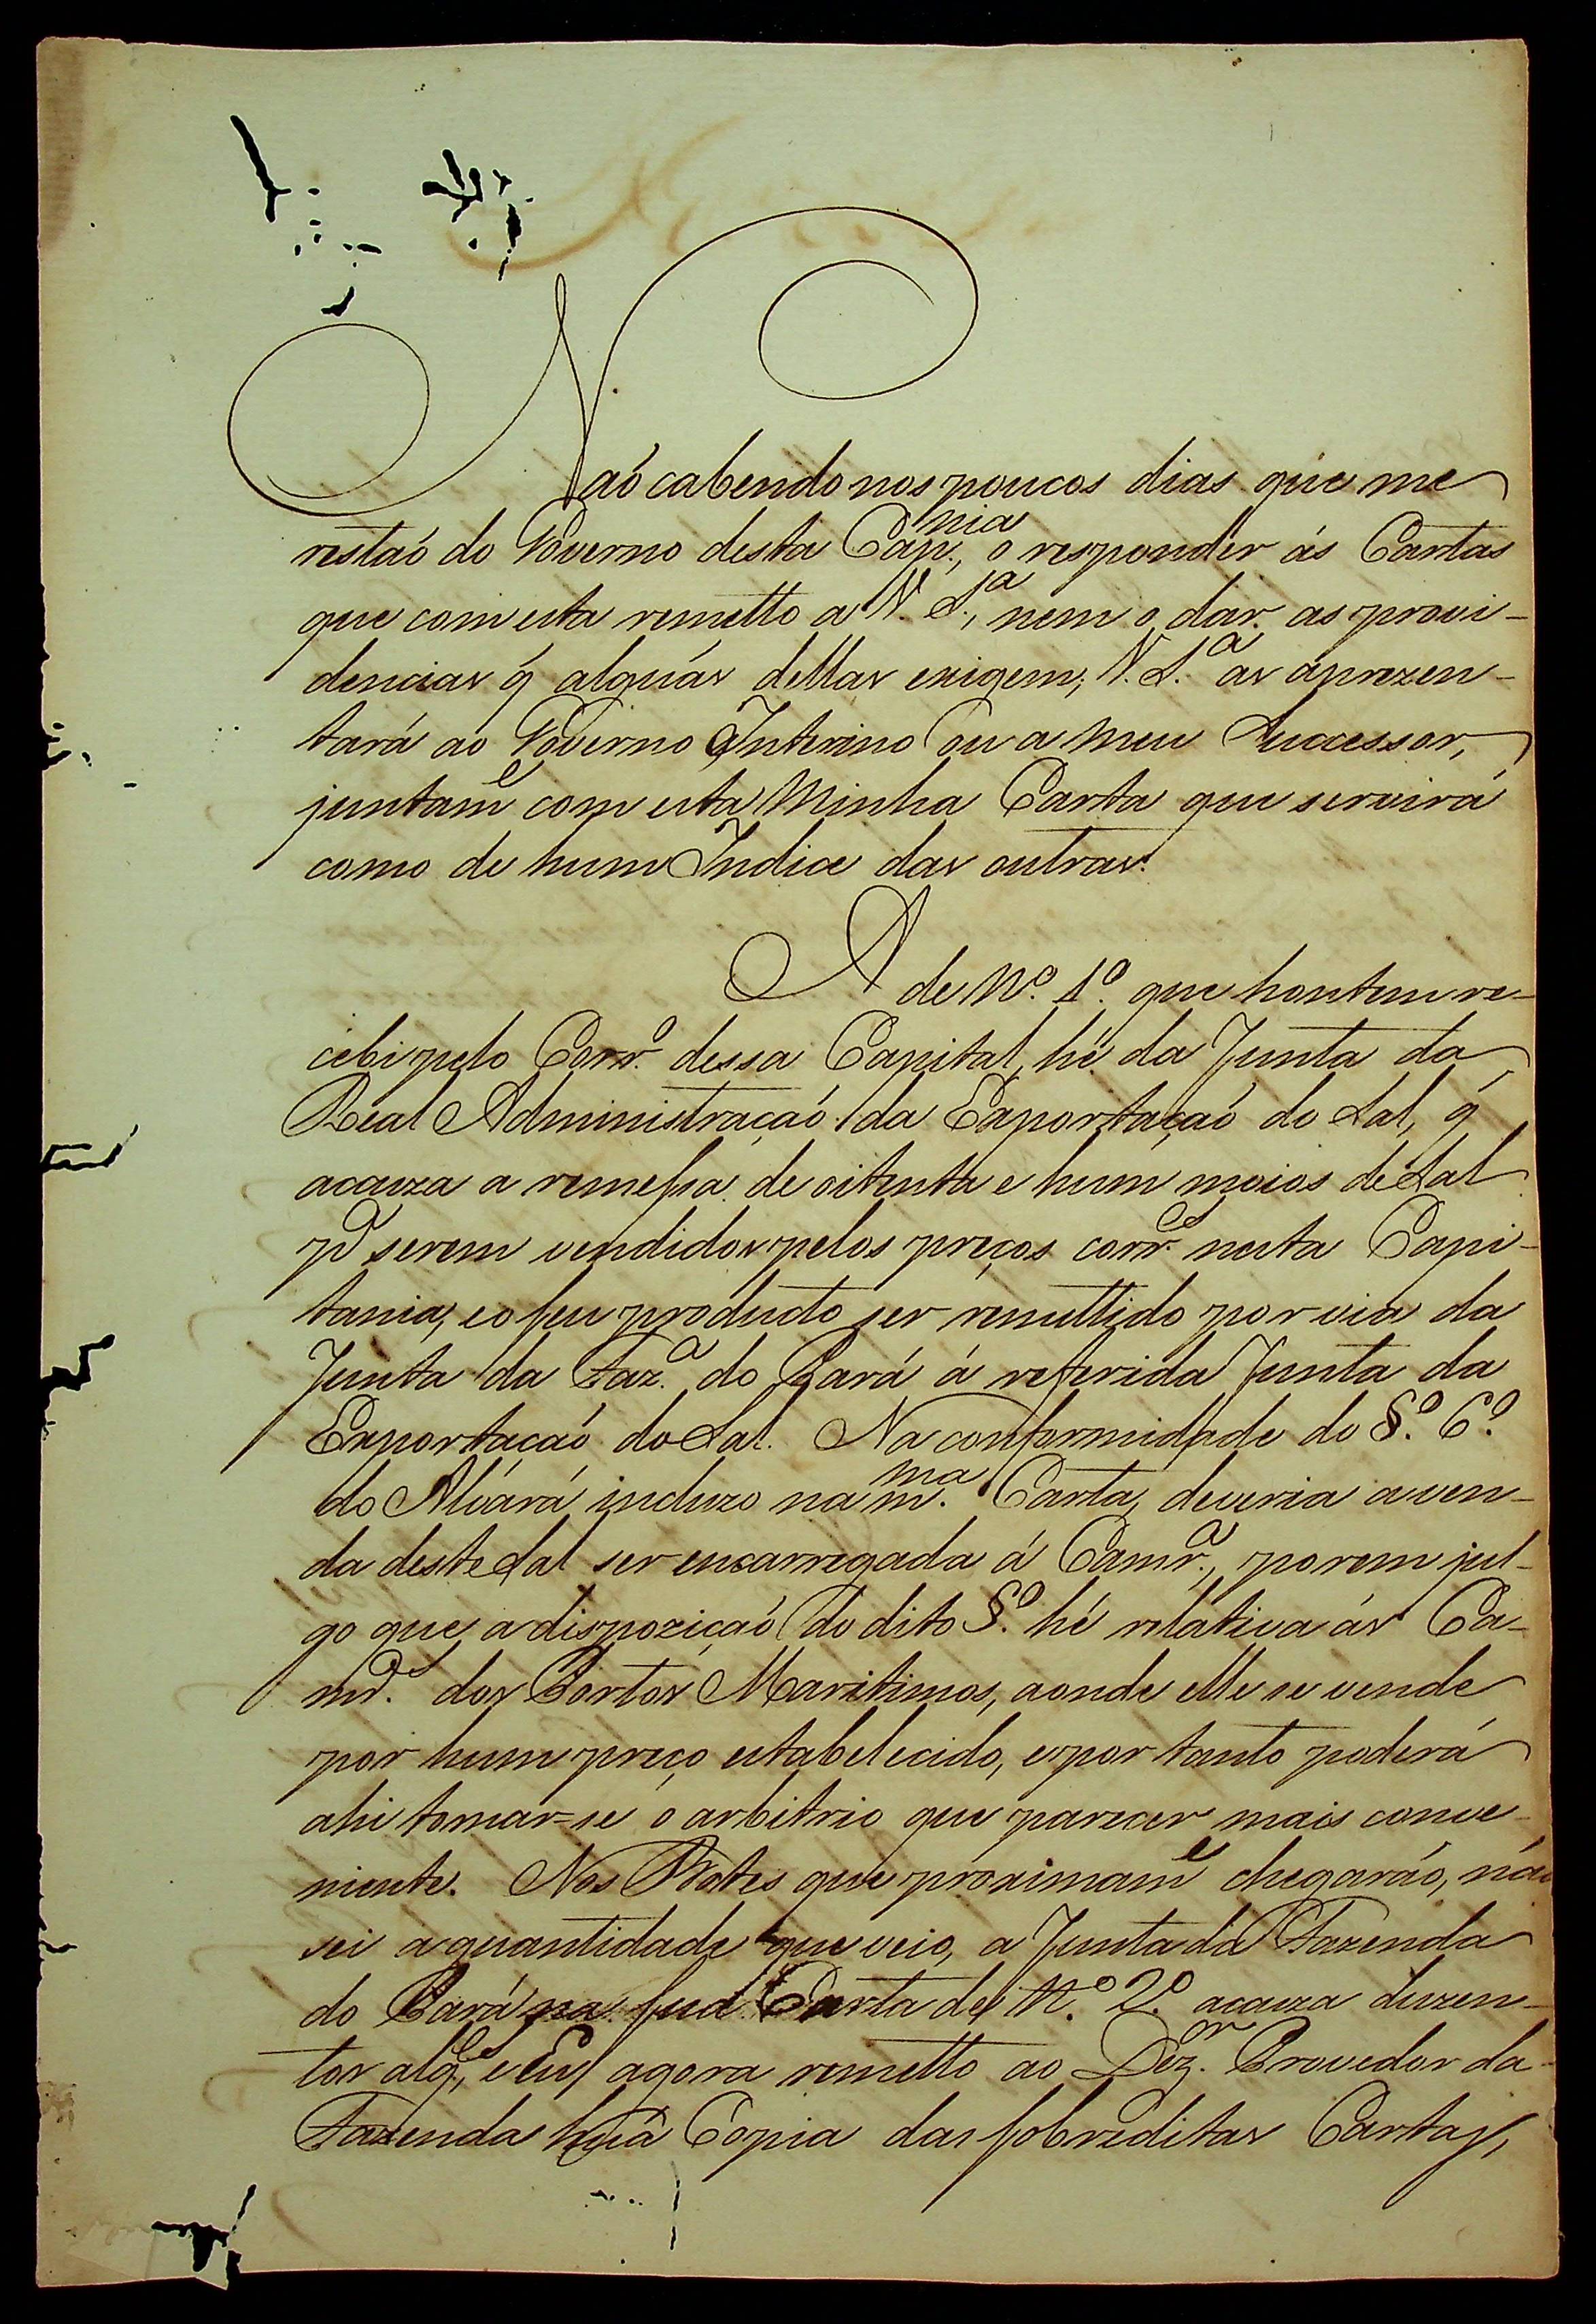 Naó cabendo nos poucos dias que me
restaó do Governo desta Cap.nia, o responder ás Cartas
que com esta remetto a V. S.a, nem o dar as provi-
dencias q̃ alguás dellas exigem; V. S.a as aprezen-
tará ao Governo Interino ou a meu Successor,
juntam.e com esta Minha Carta que servirá
como de hum Indice das outras.
A de N.o 1.o que hontem re-
cebi pelo Corr.o dessa Capital, hé da Junta da
Real Administraçaó da Exportaçaó do Sal, q̃
acauza a remessa de oitenta e hum moios de Sal
p.a serem vendidos pelos preços corr.es nesta Capi-
tania, e o seu producto ser remettido por via da
Junta da Faz.a do Pará á referida Junta da
Exportaçaó do Sal. Na conformidade do §.o 6.o
do Alvará incluzo na m.ma Carta, deveria a ven-
da deste Sal ser encarregada á Camr.a, porem jul-
go que a dispoziçaó do dito §.o hé relativa ás Ca-
mr.as dos Portos Maritimos, aonde elle se vende
por hum preço estabelecido, e por tanto poderá
ahi tomar-se o arbitrio que parecer mais conve-
niente. Nos Botes que proximam.e chegaráo, náo
sei a quantidade que veio, a Junta da Fazenda
do Pará na sua Carta de N.o 2.o acauza duzen-
tos alq.es, e Eu agora remetto ao Dez.or Provedor da
Fazenda huã Copia das sobreditas Cartas,